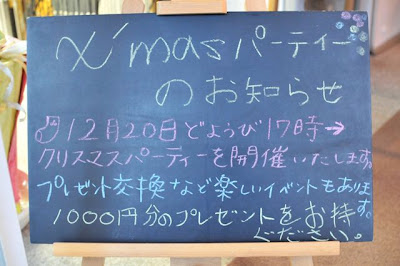 X'masパーティー
のお知らせ
12月20日どようび17時→
クリスマスパーティーを開催いたします。
プレゼント交換など楽しいイベントもあります。
1000円分のプレゼントをお持
ください。